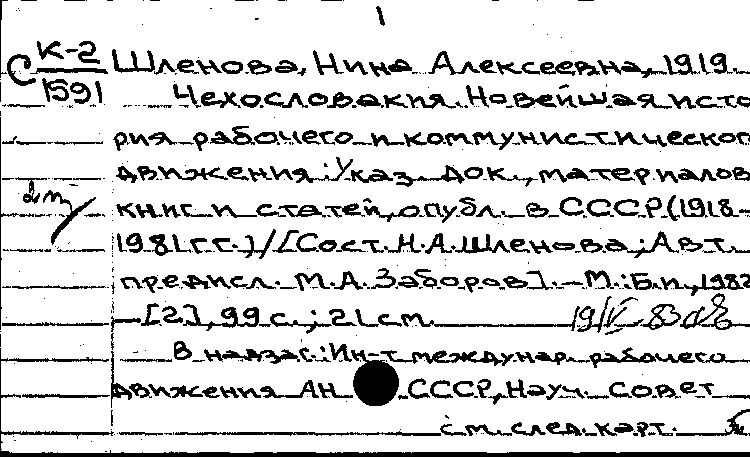 1
С К-2 Шленова, Нина Алексеевна, 1919.
1591 Чехословакия. Новейшая исто
рия рабочего и коммунистического
движения: Указ. док., материалов
книг и статей, опубл. в СССР (1918-
1981 гг.) / [Сост. Н.А. Шленова; Авт.
предисл. М.А. Заборов]. - М.: Б.и., 1982
- [2], 99 с.; 21 см. 19/V 83
В надзаг.: Ин-т междунар. рабочего
движения АН СССР, Науч. совет
см. след. карт.